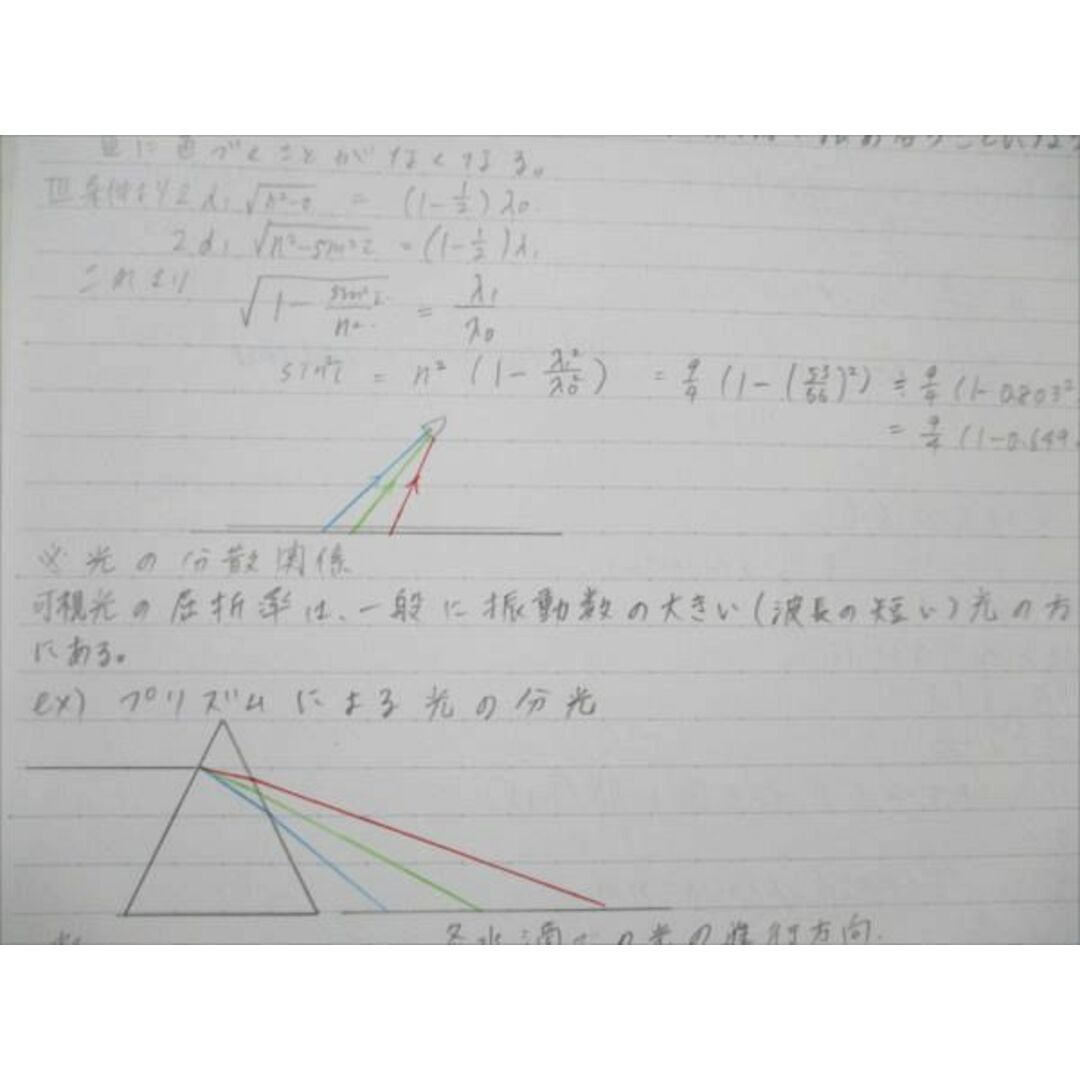 色づくことがなくなる。
条件より 2d₁√(n²-0) = (1-1/2)λ₀
2d₁√(n²-sin²i) = (1-1/2)λ₁
これより √(1-sin²i/n²) = λ₁/λ₀
sin²i = n²(1-λ₁²/λ₀²) = 9/4(1-(53/66)²) ≒ 9/4(1-0.803²
= 9/4(1-0.649
※光の分散関係
可視光の屈折率は、一般に振動数の大きい(波長の短い)光の方
にある。
ex) プリズムによる光の分光
水滴 の光の進行方向.